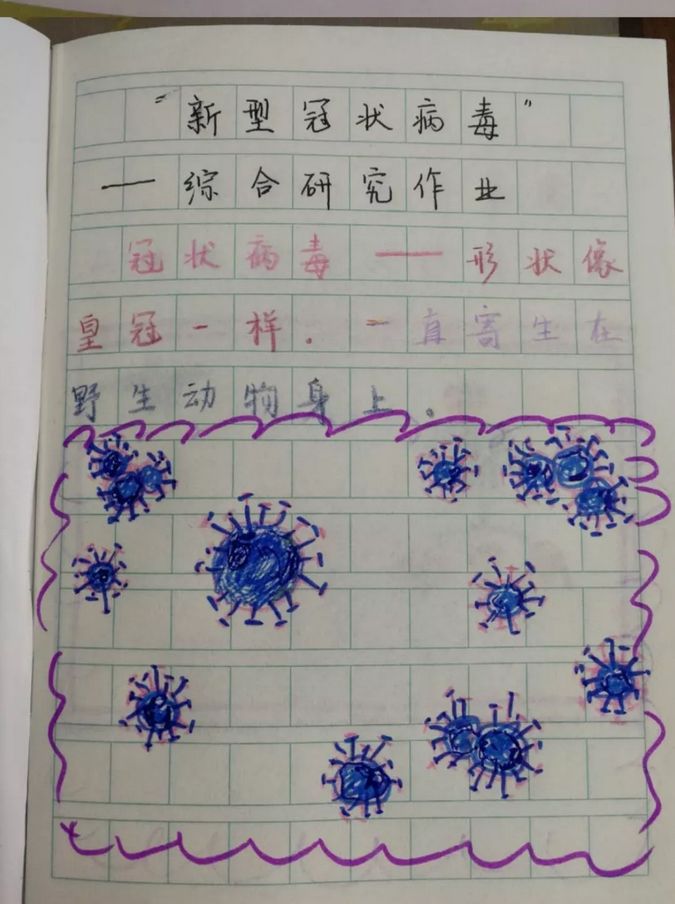 “新型冠状病毒”
——综合研究作业
冠状病毒——形状像
皇冠一样。一直寄生在
野生动物身上。